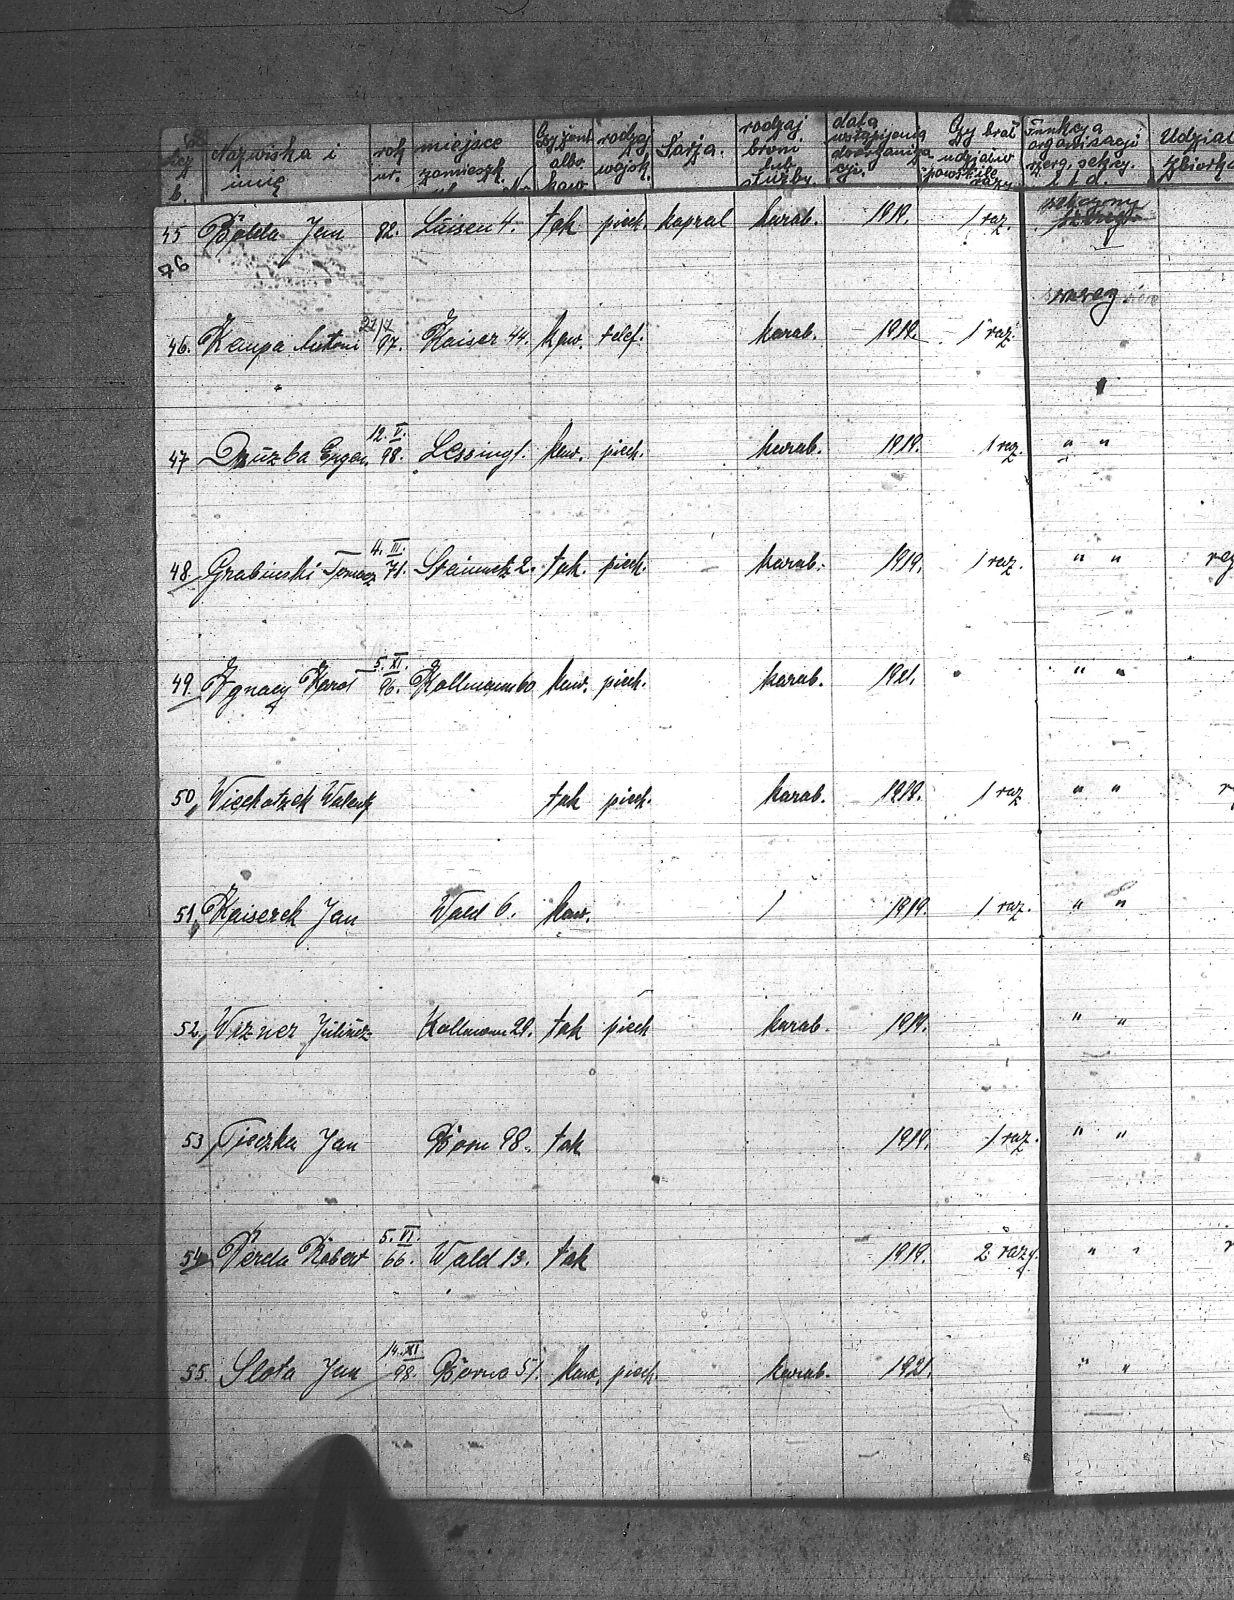 Nazwiska i imię rok ur. miejsce zamieszk. Czy żonk. albo kaw. rodzaj wojsk. Szarża. rodzaj broni lub służby. data wstąpienia do organiza cji. Czy brał udział w powst. ile razy Funkcja organizacji szereg. sekrej. i t. d. Udział zbiórka
45 Jan 82. Luisen 4. tak piech. kapral karab. 1919. 1 raz.
76
szereg
46. Kempa Antoni 97. Kaiser 44. kaw. telef. karab. 1919. 1 raz.
47 Druzba Eugen. 12. V. 98. Lessing 1. kaw. piech. karab. 1919. 1 raz. " "
48. Grabinski Tomasz 4. III. 71. Steinmetz 2. tak. piech. karab. 1919. 1 raz. " "
49. Ignacy Karol 5. XI. 96. Kollmann 60 kaw. piech. karab. 1921. " "
50, Wiechotzek Walenty tak piech. karab. 1919. 1 raz " "
51, Kaiserek Jan Wald 6. kaw. / 1919. 1 raz. " "
52, Wizner Juliusz Kollmann 29. tak piech karab. 1919. " "
53, Tioczka Jan 98. tak 1919. 1 raz. " "
54, Perda Robert 5. VI. 66. Wald 13. tak 1919. 2 razy. " "
55. Slota Jan 14. XI 98. 51. kaw. piech. karab. 1921. " "